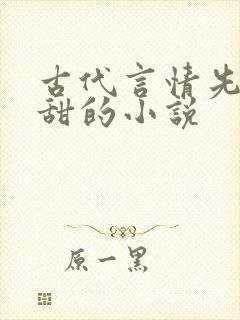 古代言情先
甜的小说
原一黑